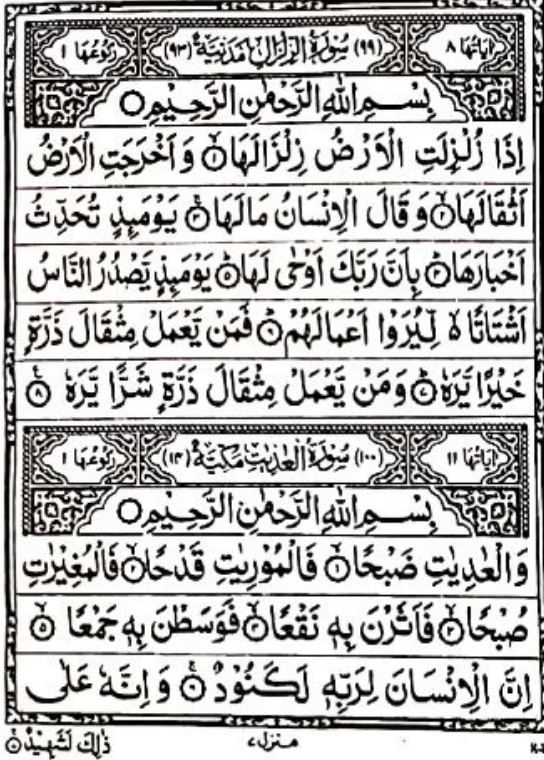 اٰيَاتُهَا ٨ (٩٩) سُوْرَةُ الزِّلْزَالِ مَدَنِيَّةٌ (٩٣) رُكُوْعُهَا ١
بِسْمِ اللّٰهِ الرَّحْمٰنِ الرَّحِيْمِ ۝
اِذَا زُلْزِلَتِ الْاَرْضُ زِلْزَالَهَا ۝١ وَ اَخْرَجَتِ الْاَرْضُ
اَثْقَالَهَا ۝٢ وَ قَالَ الْاِنْسَانُ مَا لَهَا ۝٣ يَوْمَىِٕذٍ تُحَدِّثُ
اَخْبَارَهَا ۝٤ بِاَنَّ رَبَّكَ اَوْحٰى لَهَا ۝٥ يَوْمَىِٕذٍ يَّصْدُرُ النَّاسُ
اَشْتَاتًا ۙ لِّيُرَوْا اَعْمَالَهُمْ ۝٦ فَمَنْ يَّعْمَلْ مِثْقَالَ ذَرَّةٍ
خَيْرًا يَّرَهٗ ۝٧ وَ مَنْ يَّعْمَلْ مِثْقَالَ ذَرَّةٍ شَرًّا يَّرَهٗ ۝٨
اٰيَاتُهَا ١١ (١٠٠) سُوْرَةُ الْعٰدِيٰتِ مَكِّيَّةٌ (١٤) رُكُوْعُهَا ١
بِسْمِ اللّٰهِ الرَّحْمٰنِ الرَّحِيْمِ ۝
وَ الْعٰدِيٰتِ ضَبْحًا ۝١ فَالْمُوْرِيٰتِ قَدْحًا ۝٢ فَالْمُغِيْرٰتِ
صُبْحًا ۝٣ فَاَثَرْنَ بِهٖ نَقْعًا ۝٤ فَوَسَطْنَ بِهٖ جَمْعًا ۝٥
اِنَّ الْاِنْسَانَ لِرَبِّهٖ لَكَنُوْدٌ ۝٦ وَ اِنَّهٗ عَلٰى
ذٰلِكَ لَشَهِيْدٌ ۝٧ منزل ٧